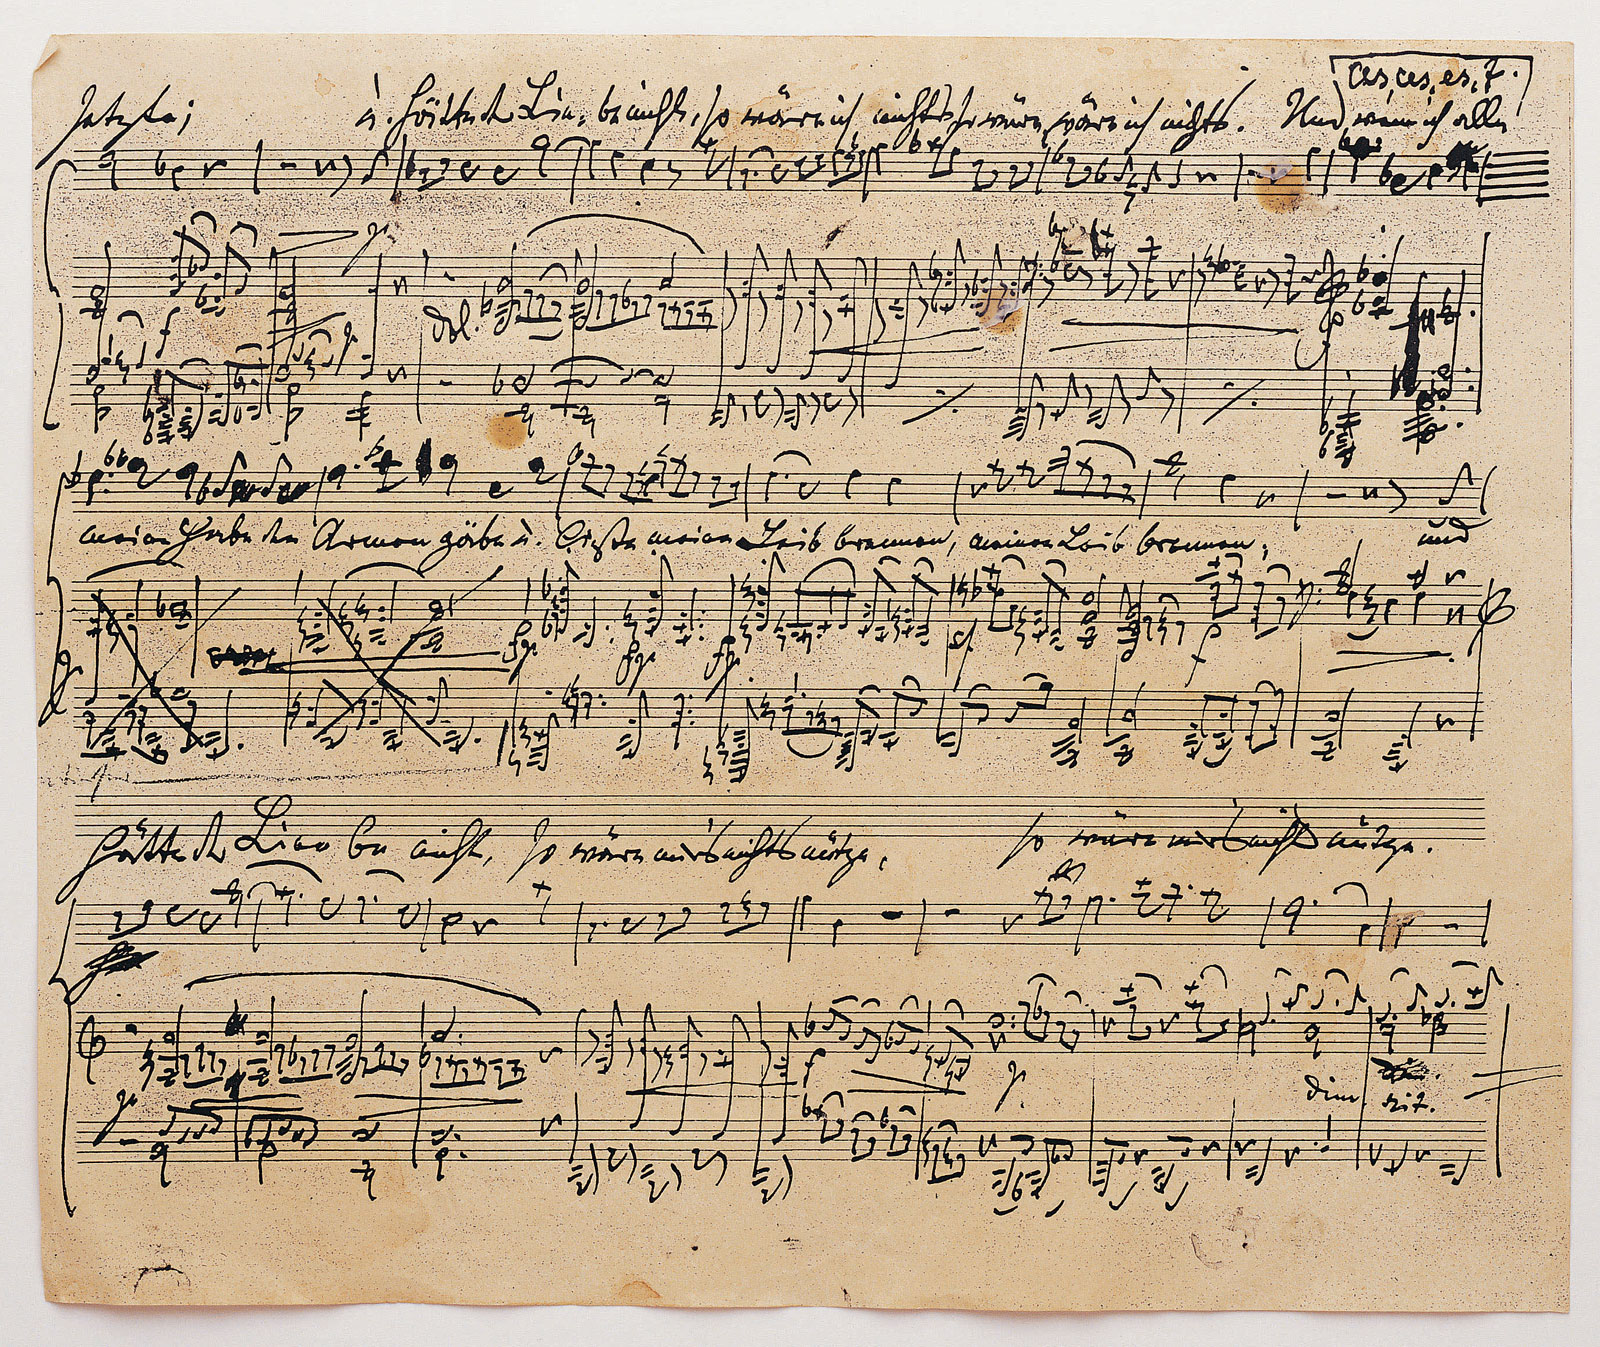 ces, ces, es, f.
setzte; u. hätte der Liebe nicht, so wäre ich nichts, so wäre, wäre ich nichts. Und wenn ich alle
p.
dol.
meine Habe den Armen gäbe u. ließe meinen Leib brennen, meinen Leib brennen; und
hätte der Liebe nicht, so wäre mir's nichts nütze, so wäre mir's nichts nütze.
f
p.
dim. rit.